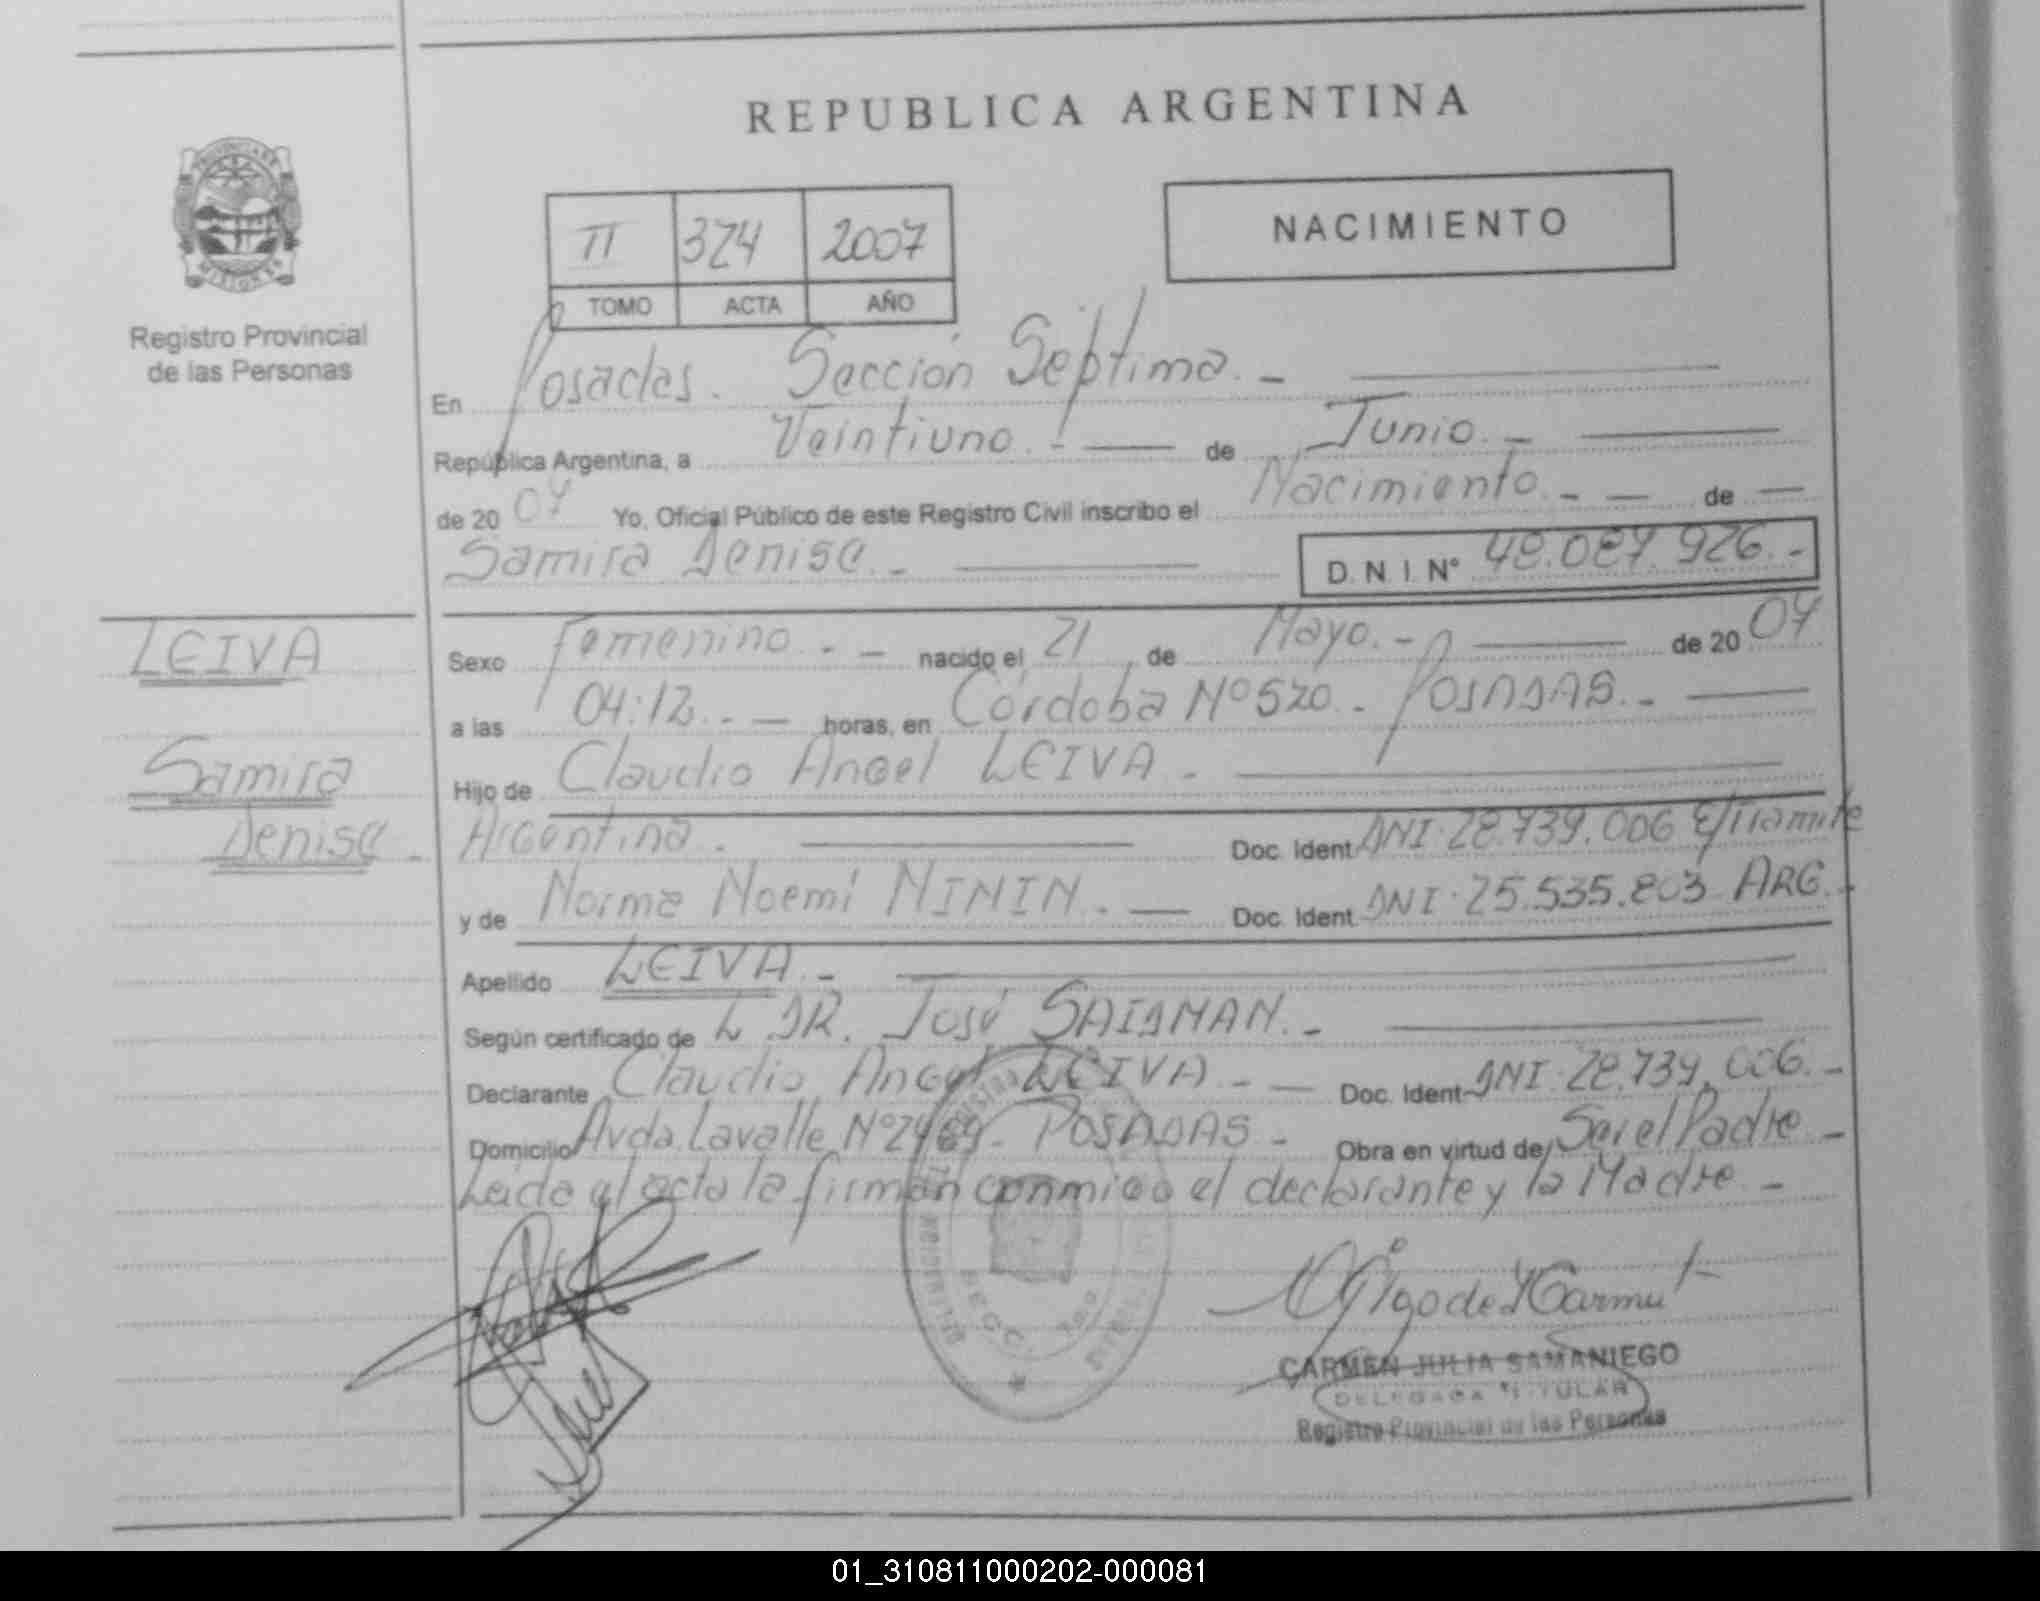 REPUBLICA ARGENTINA
PROVINCIA DE
MISIONES
Registro Provincial
de las Personas
II 324 2007
TOMO ACTA AÑO
NACIMIENTO
En Posadas. Sección Séptima. -
República Argentina, a Veintiuno. - de Junio. -
de 20 07 Yo, Oficial Público de este Registro Civil inscribo el Nacimiento. - - de -
Samira Denise. - D. N. I. Nº 48.087.926. -
LEIVA
Samira
Denise. -
Sexo Femenino. - - nacido el 21 de Mayo. - de 20 07
a las 04:12. - - horas, en Córdoba Nº 520. - POSADAS. -
Hijo de Claudio Angel LEIVA. -
Argentina. Doc. Ident. DNI. 28.739.006 E/Tramite
y de Norma Noemí NININ. - Doc. Ident. DNI. 25.535.803 ARG. -
Apellido LEIVA. -
Según certificado de L DR. José SAIDMAN. -
Declarante Claudio Angel LEIVA. - - Doc. Ident. DNI. 28.739.006. -
Domicilio Avda. Lavalle Nº 2469. POSADAS - Obra en virtud de Ser el Padre -
Leida el acta la firman conmigo el declarante y la Madre. -
CARMEN JULIA SAMANIEGO
DELEGADA TITULAR
Registro Provincial de las Personas
01_310811000202-000081